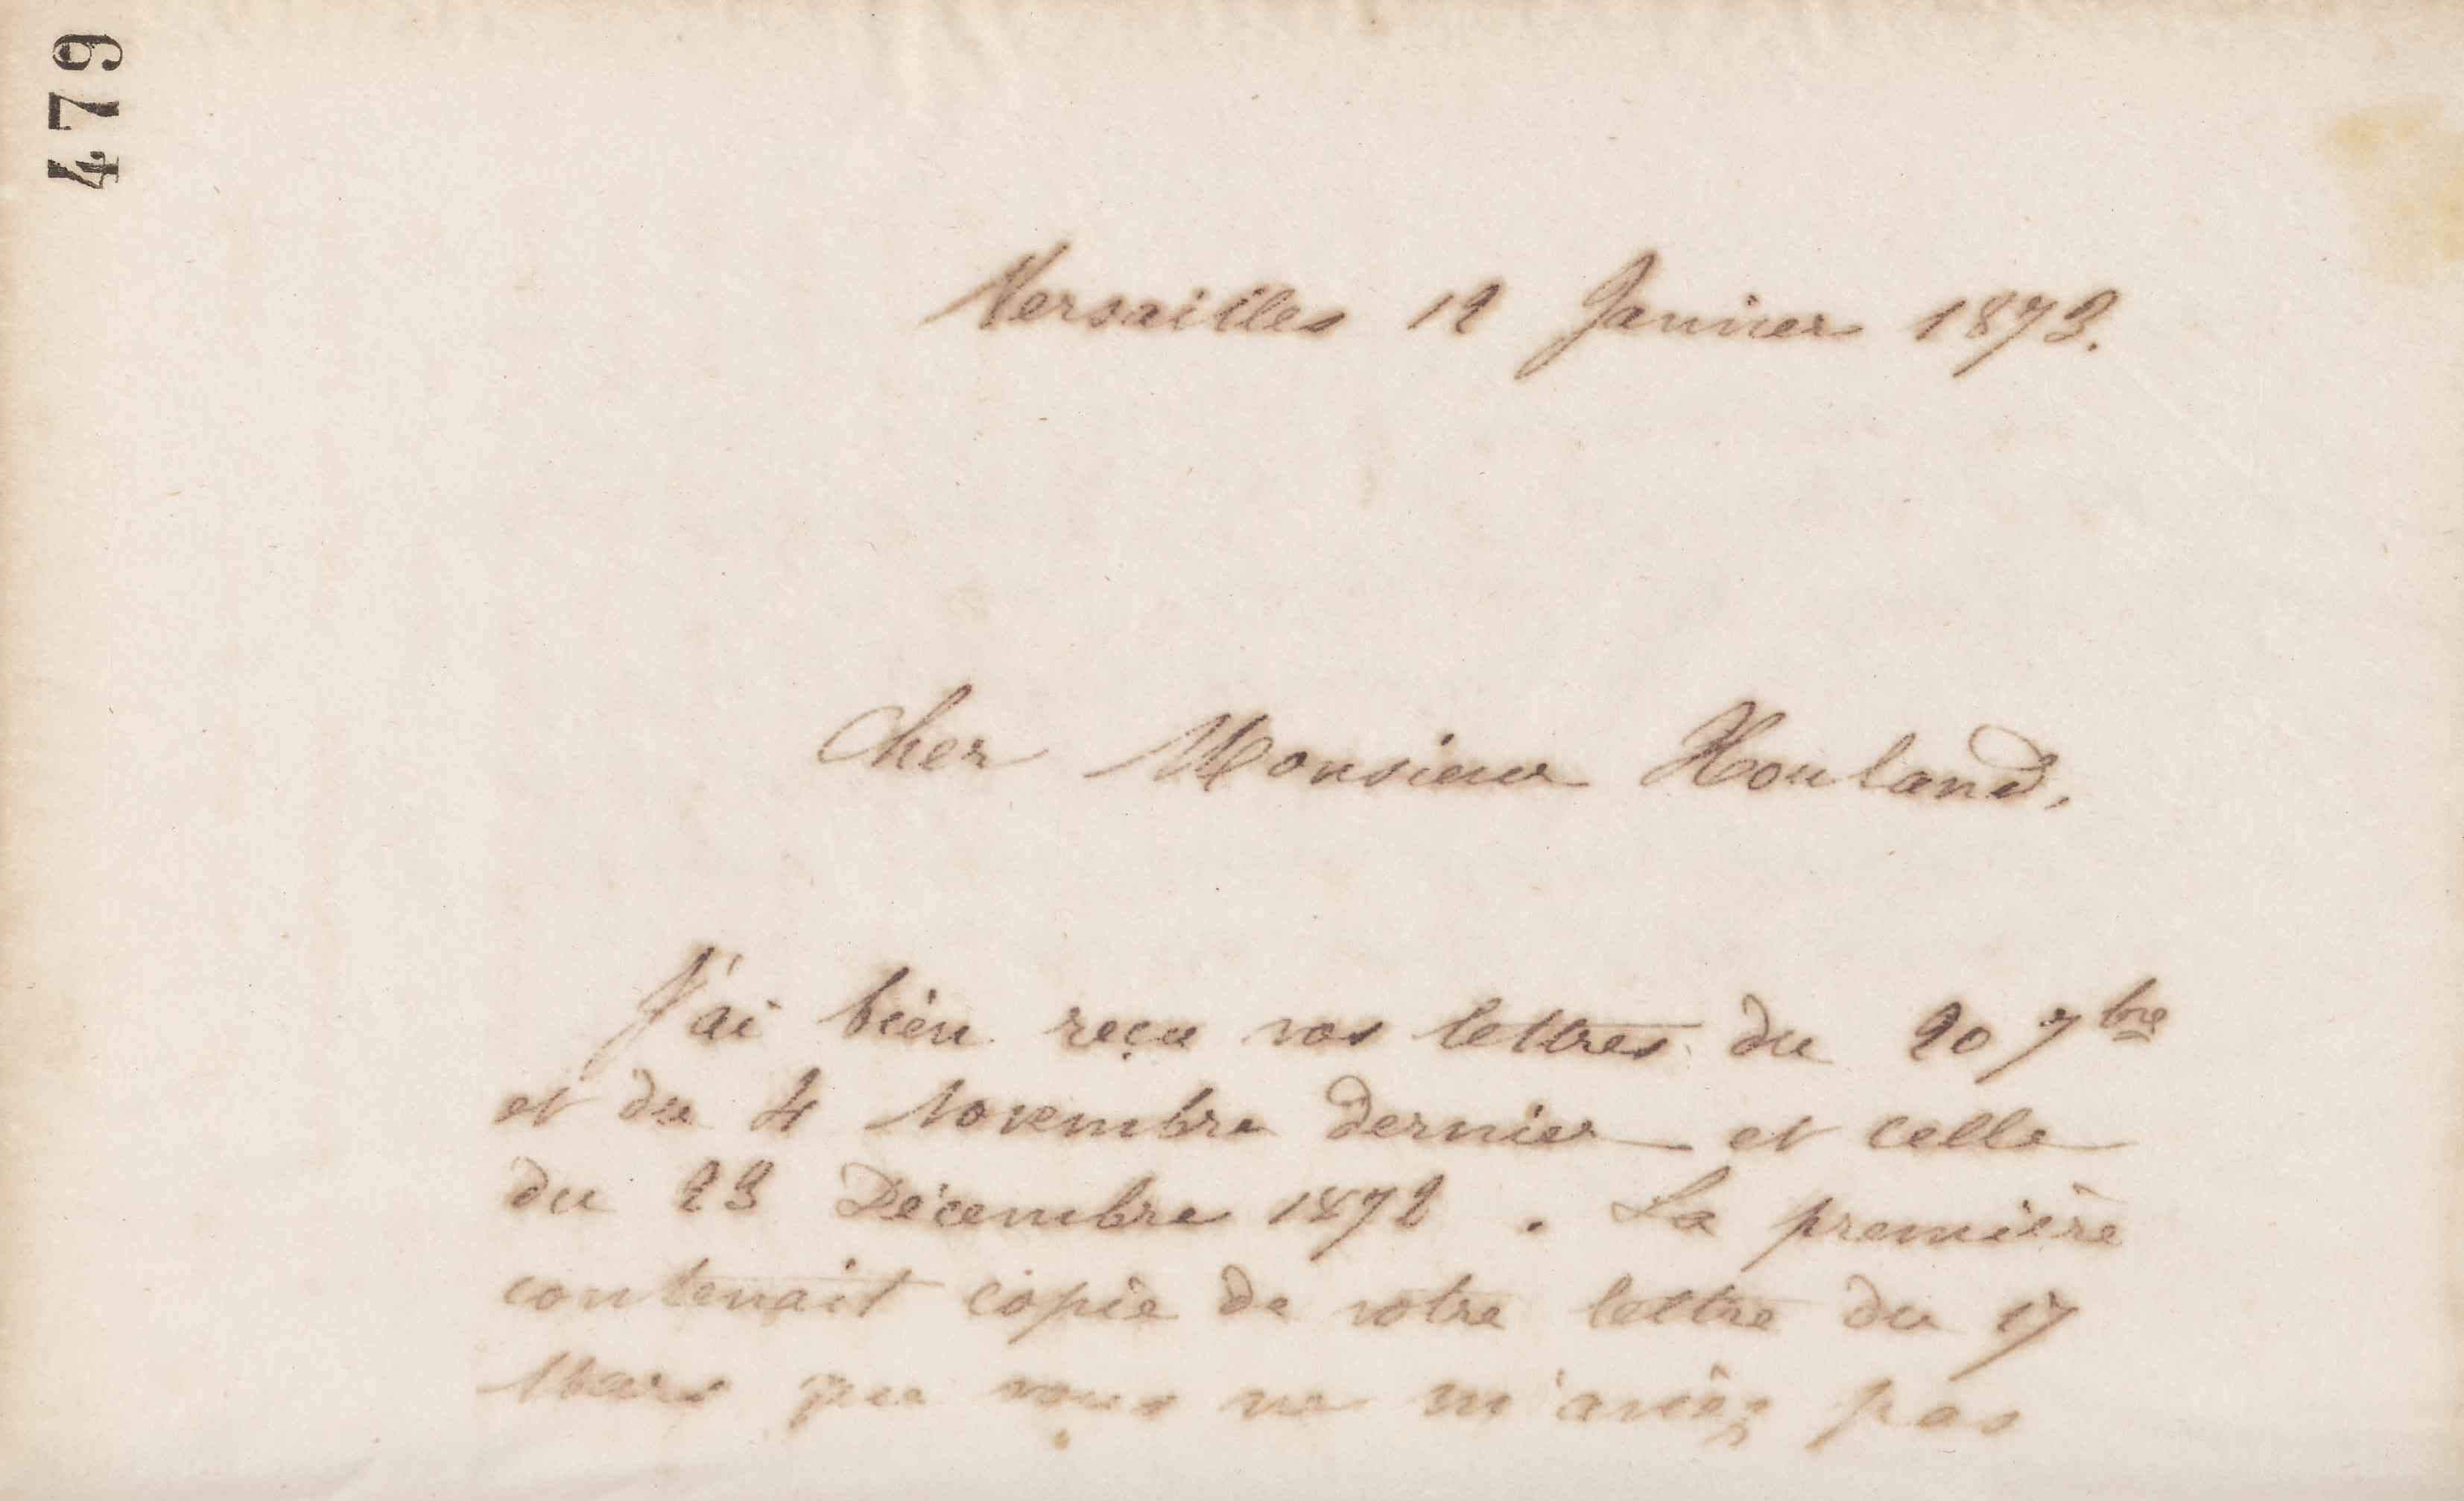 479
Versailles 12 Janvier 1873.
Cher Monsieur Houland,
J'ai bien reçu vos lettres du 20 7bre
et du 4 Novembre dernier et celle
du 23 Décembre 1872. La première
contenait copie de votre lettre du 17
Mars que vous ne m'aviez pas